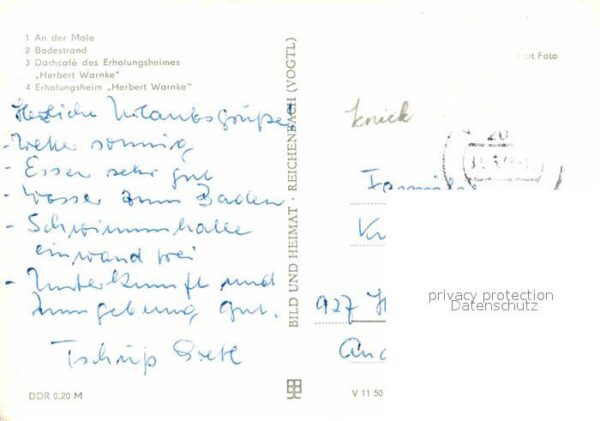 1 An der Mole
2 Badestrand
3 Dachcafé des Erholungsheimes
„Herbert Warnke"
4 Erholungsheim „Herbert Warnke"
Herzliche Urlaubsgrüße
- Wetter sonnig
- Essen sehr gut
- Wasser zum Baden
- Schwimmhalle
einwandfrei
- Unterkunft und
Umgebung gut.
Tschüß
DDR 0,20 M
BILD UND HEIMAT · REICHENBACH (VOGTL)
Foto
knick
20
Familie
927
privacy protection
Datenschutz
V 11 50